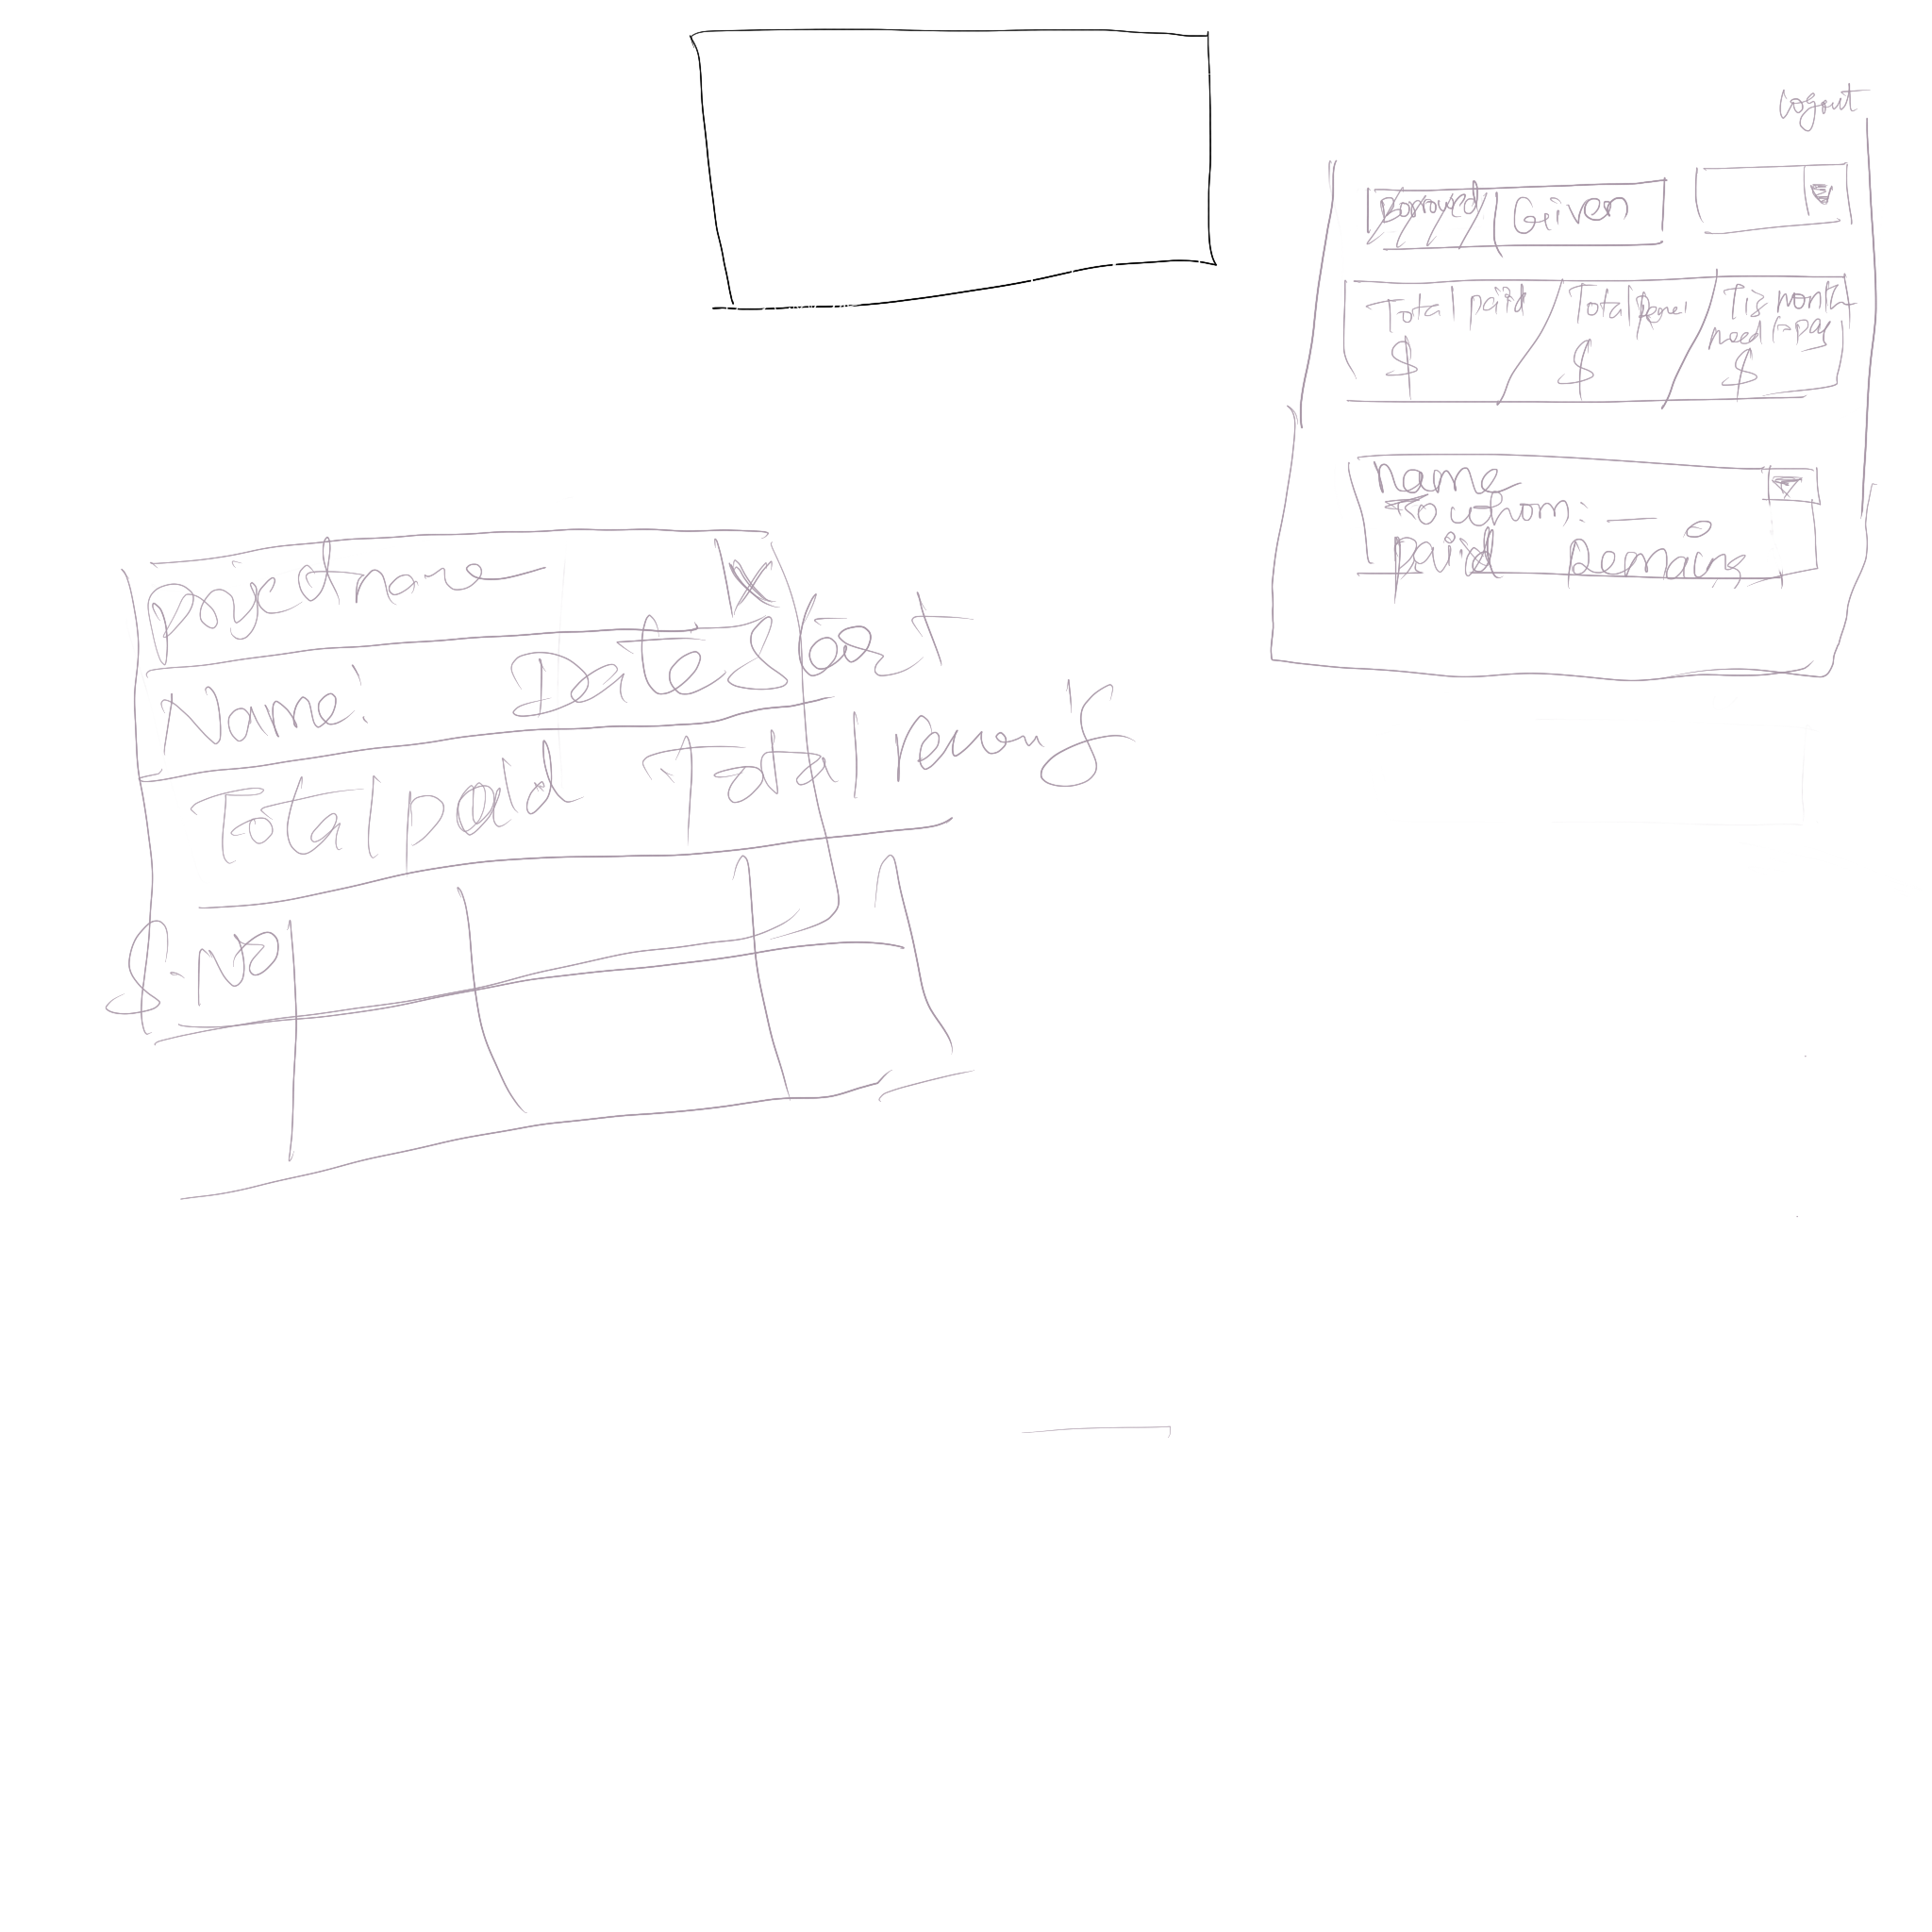 Logout
Borrowed Given
Total paid Total This month
need pay
$ $ $
Name
To whom: —
paid Remaing
Project name X
Name: Date Start
Total paid Total
S.No